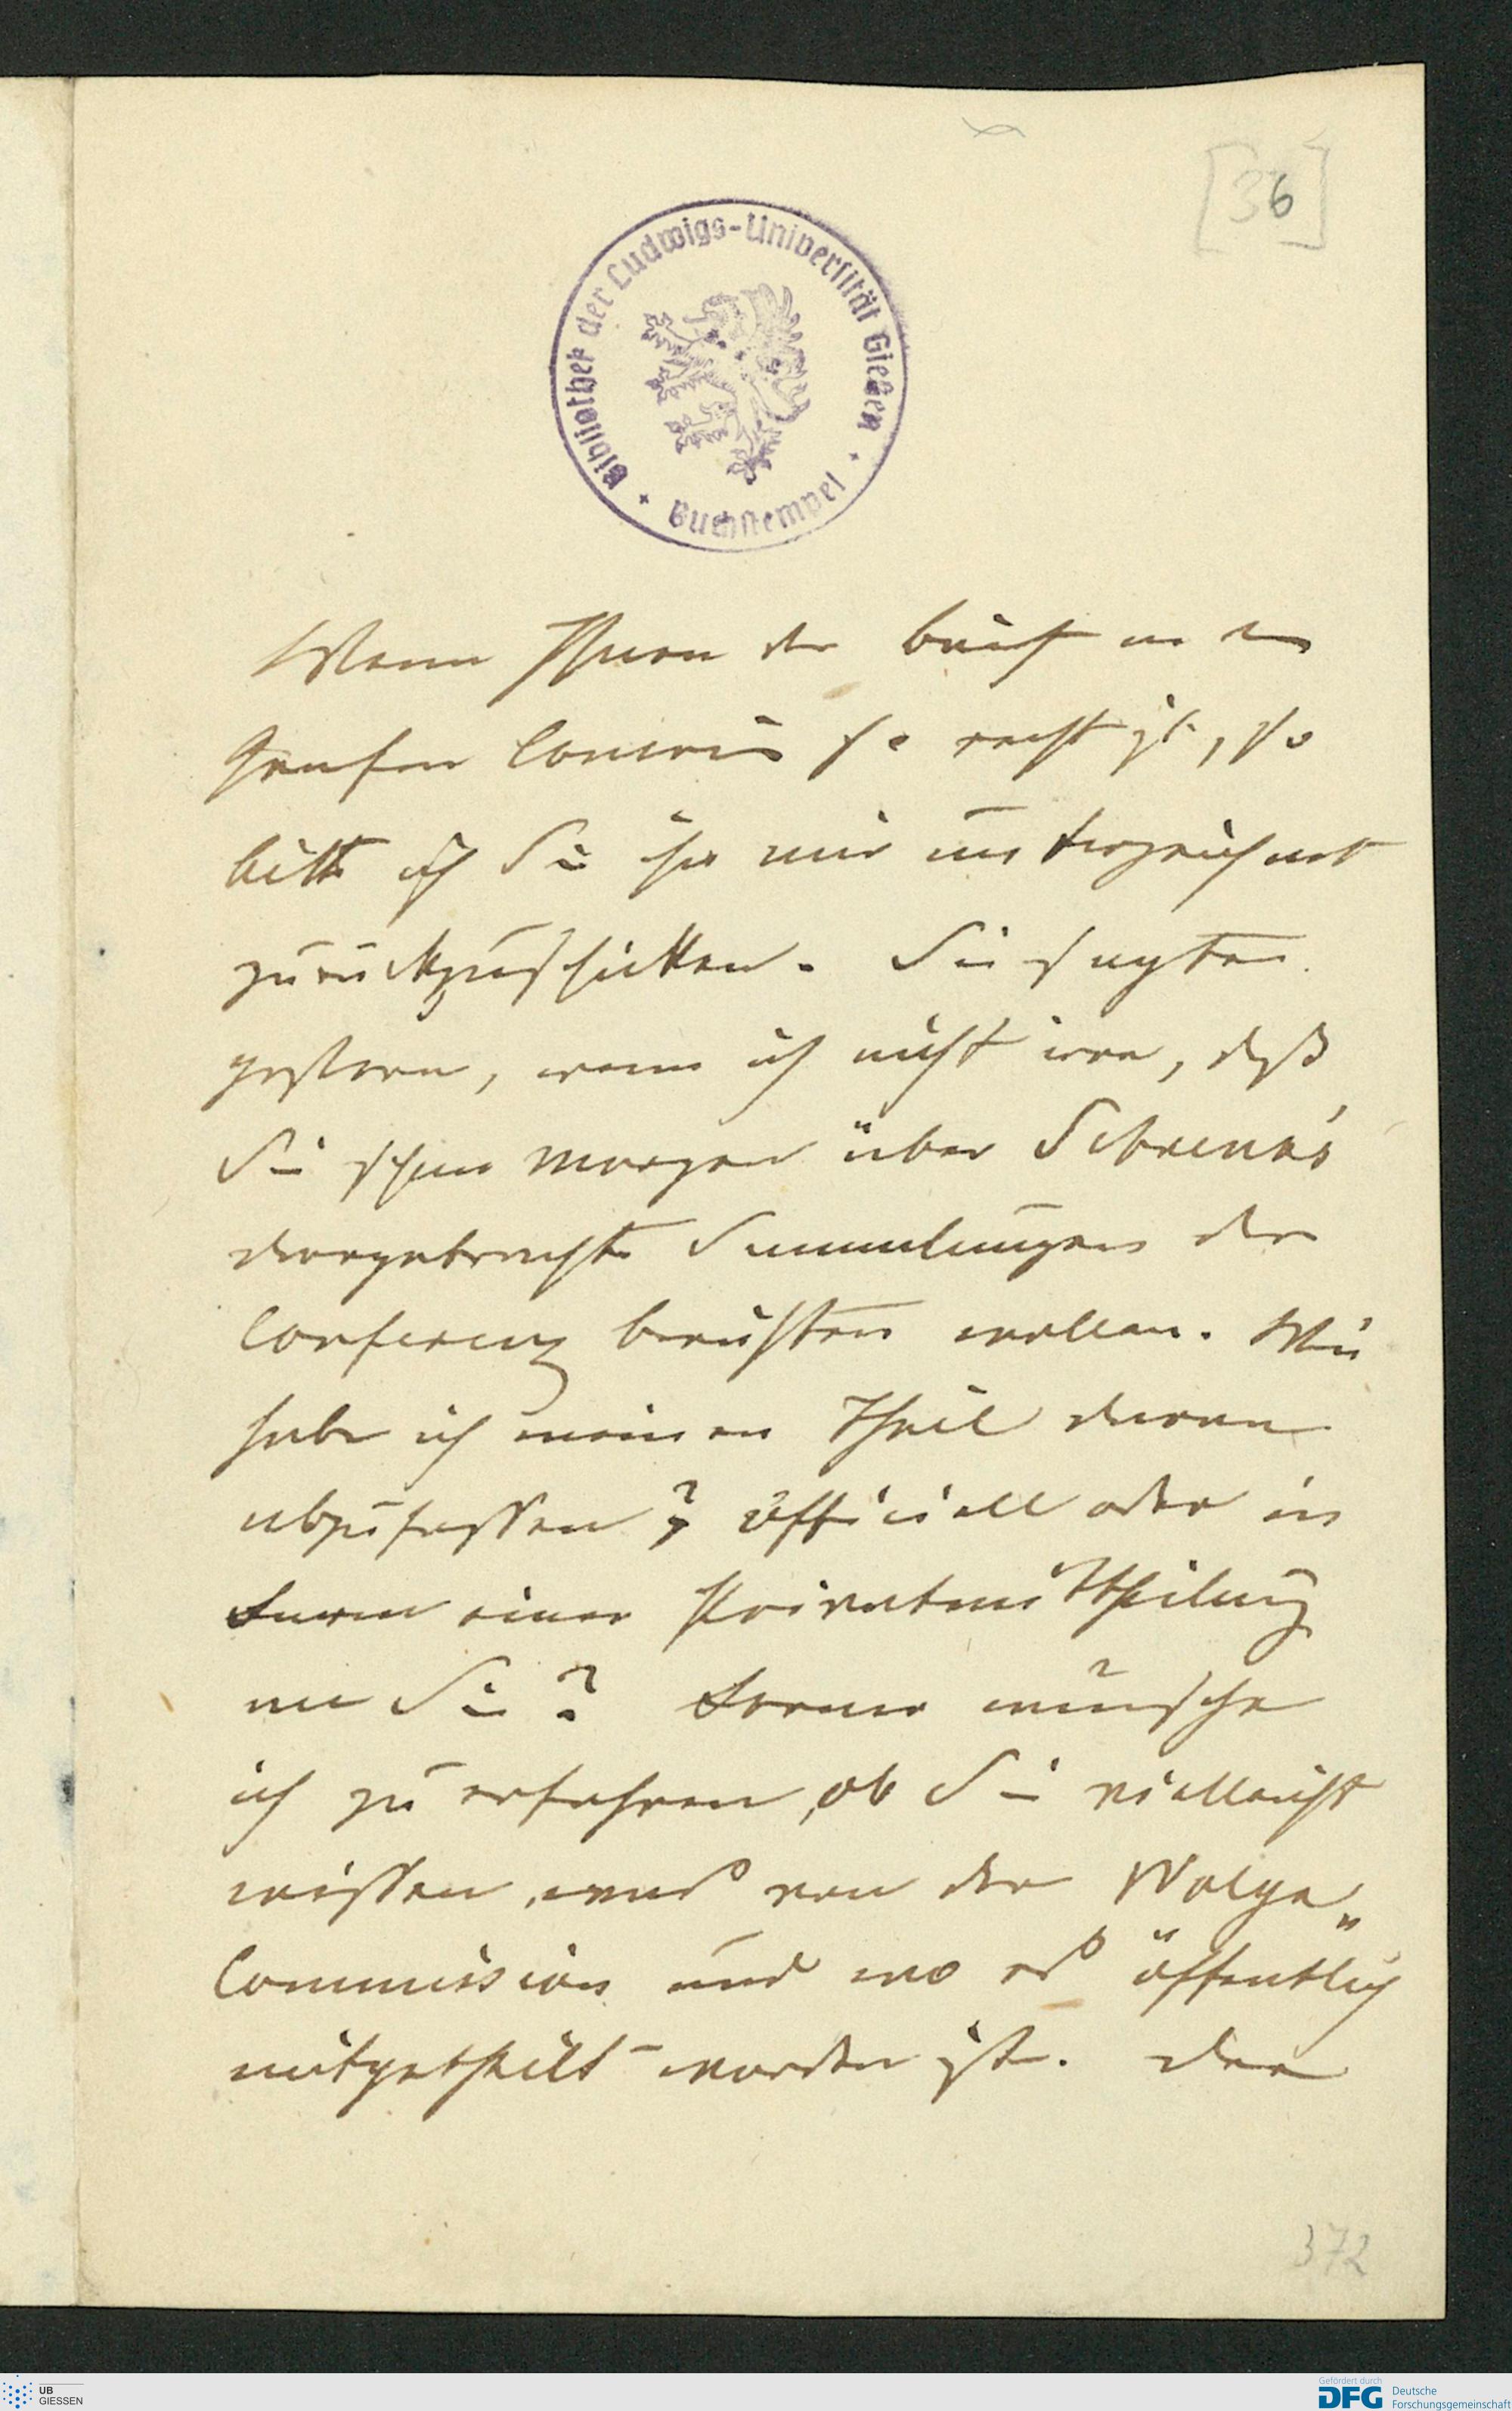 [36]
Bibliothek der Ludwigs-Universität Gießen
Buchstempel
Wenn Ihnen der Brief an den
Grafen so recht ist, so
bitte ich Sie ihn mir unterzeichnet
zurückzuschicken. Sie sagten
gestern, wenn ich nicht irre, daß
Sie schon morgen über Schrenk's
hergebrachte Sammlungen der
Conferenz berichten wollen. Wie
habe ich meinen Theil daran
abzufassen? Officiell oder in
Form einer Privatmittheilung
an Sie? Ferner wünsche
ich zu erfahren, ob Sie vielleicht
wissen, was von der Wolga„
Commission und wo es öffentlich
mitgetheilt worden ist. Der
372
UB
GIESSEN
Gefördert durch
DFG Deutsche
Forschungsgemeinschaft